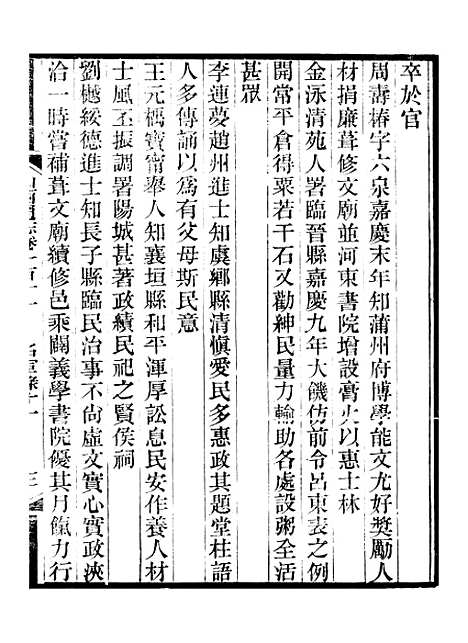 卒於官
周壽椿字六泉嘉慶末年知蒲州府博學能文尤好奬勵人
材捐廉葺修文廟並河東書院增設膏火以惠士林
金泳清苑人署臨晉縣嘉慶九年大饑仿前令呂東表之例
開常平倉得粟若干石又勸紳民量力輸助各處設粥全活
甚眾
李連夢趙州進士知虞鄉縣清愼愛民多惠政其題堂柱語
人多傳誦以為有父母斯民意
王元㮰寶甯舉人知襄垣縣和平渾厚訟息民安作養人材
士風丕振調署陽城甚著政績民祀之賢侯祠
劉樾綏德進士知長子縣臨民治事不尙虛文實心實政浹
洽一時嘗補葺文廟續修邑乘闢義學書院優其月餼力行